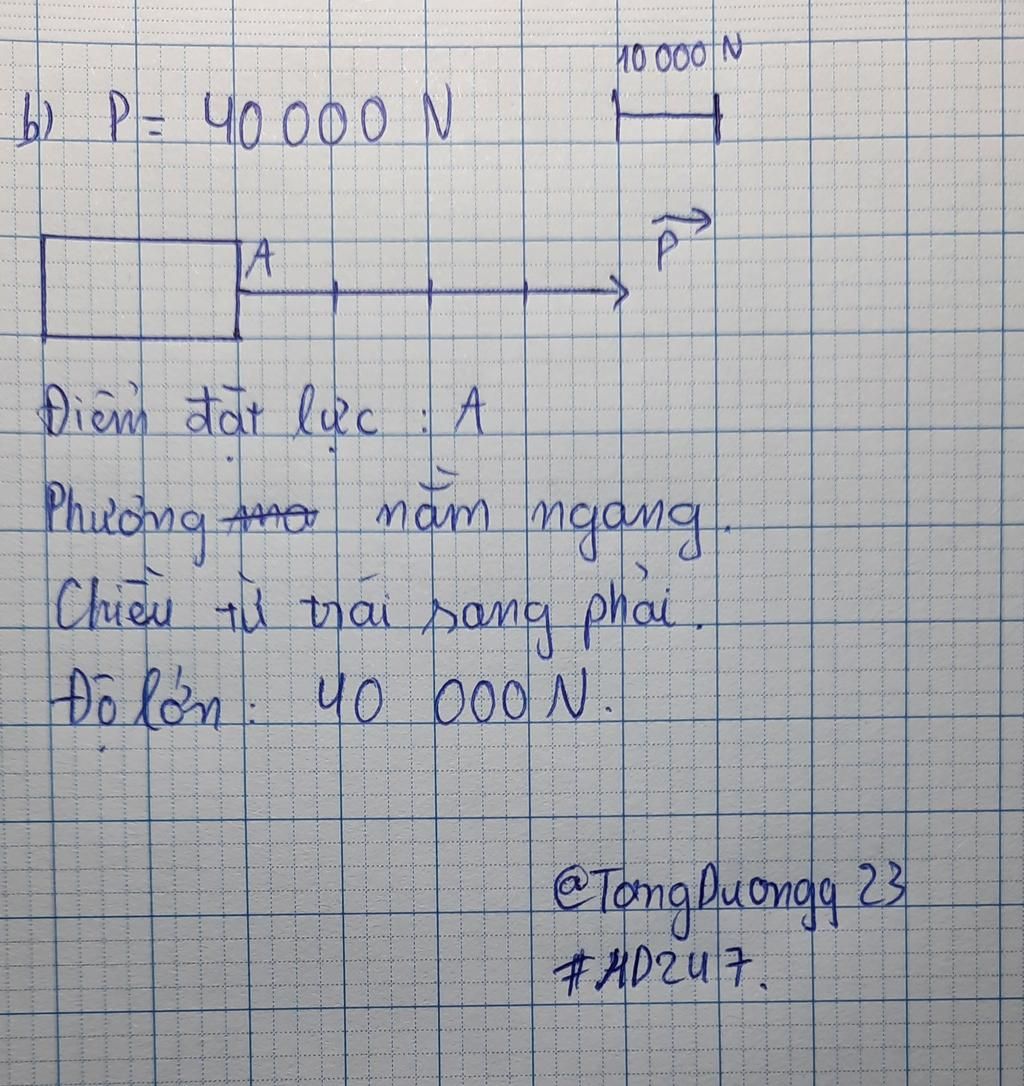 10 000 N
b) P = 40 000 N
P
A
Điểm đặt lực : A
Phương nằm ngang.
Chiều từ trái sang phải.
Độ lớn : 40 000 N.
@TongDuongg 23
#HD247.